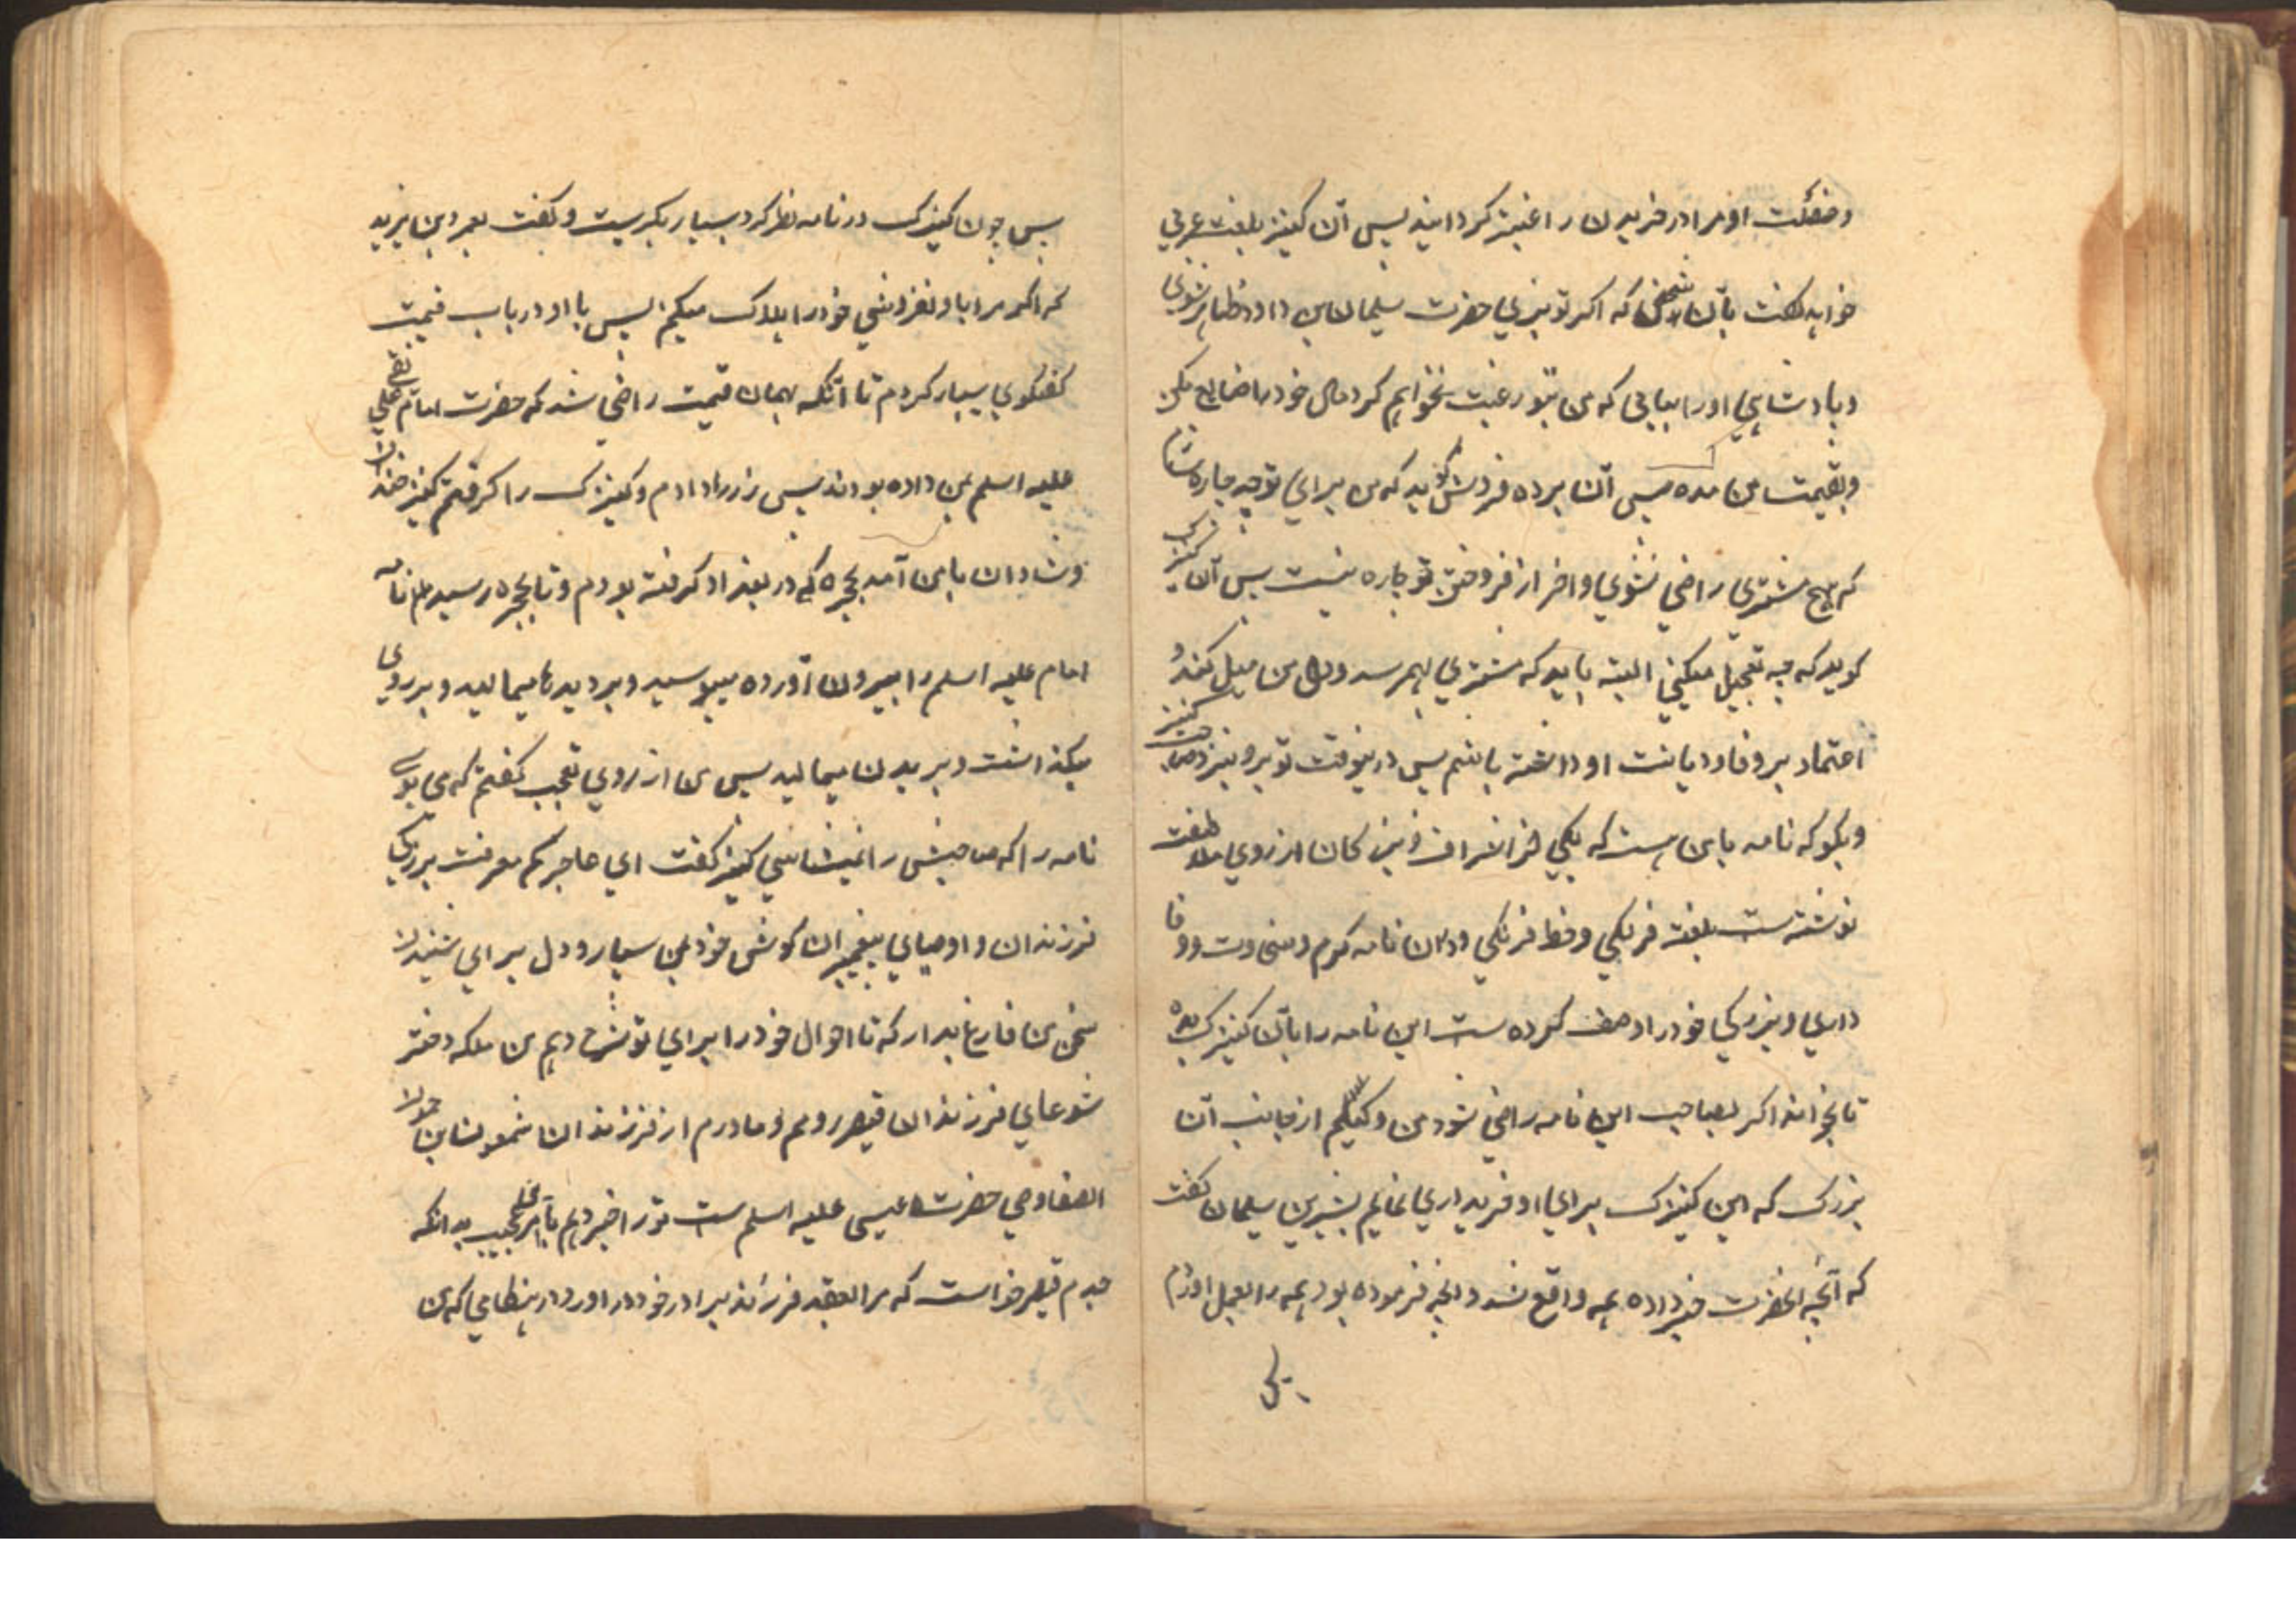 وعفت او مرا در خریدن راغب‌تر گردانید پس آن کنیز بلغت عربی
خواهد گفت بآن شخص که اگر تو بزی حضرت سلیمان بن داود ظاهر شوی
و پادشاهی او را بیابی که من بتو رغبت نخواهم کرد مال خود را ضایع مکن
و بقیمت من مده پس آن برده فروش گوید که من برای تو چه چاره سازم
که بهیچ مشتری راضی نشوی و اخر از فروختن تو چاره نیست پس آن کنیزک
گوید که چه تعجیل میکنی البته باید که مشتری بهم رسد و دل من میل کند و
اعتماد بر وفا و دیانت او داشته باشم پس در ینوقت تو برو بنزد صاحب کنیز
و بگو که نامه بامن هست که یکی از اشراف و بزرگان از روی ملاطفت
نوشته ست بلغت فرنگی و خط فرنگی و در ان نامه کرم و سخاوت و وفا
داری و بزرگی خود را وصف کرده ست این نامه را بآن کنیزک بده
تا بخواند اگر بصاحب این نامه راضی شود من وکیلم از جانب آن
بزرگ که این کنیزک برای او خریداری نمایم بشیر بن سلیمان گفت
که آنچه انحضرت خبر داده همه واقع شد و انچه فرموده بود همه را بعمل اوردم
پس چون کنیزک در نامه نظر کرد بسیار بگریست و گفت بعمر و بن یزید
که اگر مرا باو نفروشی خود را هلاک میکنم پس با او در باب قیمت
گفتگوی بسیار کردم تا آنکه بهمان قیمت راضی شد که حضرت امام علی نقی
علیه اسلم بمن داده بودند پس زر را دادم و کنیزک را گرفتم کنیز خندان
و شادان با من آمد بحجره که در بغداد گرفته بودم و تا بحجره رسیدیم نامه
امام علیه اسلم را بیرون آورده میبوسید و بر دیده‌ها میمالید و بر روی
میگذاشت و بر بدن میمالید پس من از روی تعجب گفتم که می بوسی
نامه را که صاحبش را نمیشناسی کنیز گفت ای عاجز کم معرفت ببزرگی
فرزندان و اوصیای پیغمبران گوش خود بمن سپار و دل برای شنیدن
سخن من فارغ بدار که تا احوال خود را برای تو شرح دهم من ملکه دختر
شوعای فرزندان قیصر رومم و مادرم از فرزندان شمعون بن حمون
الصفا وصی حضرت عیسی علیه اسلم ست تو را خبر دهم بآمر عجیب بدانکه
جدم قیصر خواست که مرا بعقد فرزند برادر خود در اورد در هنگامی که من